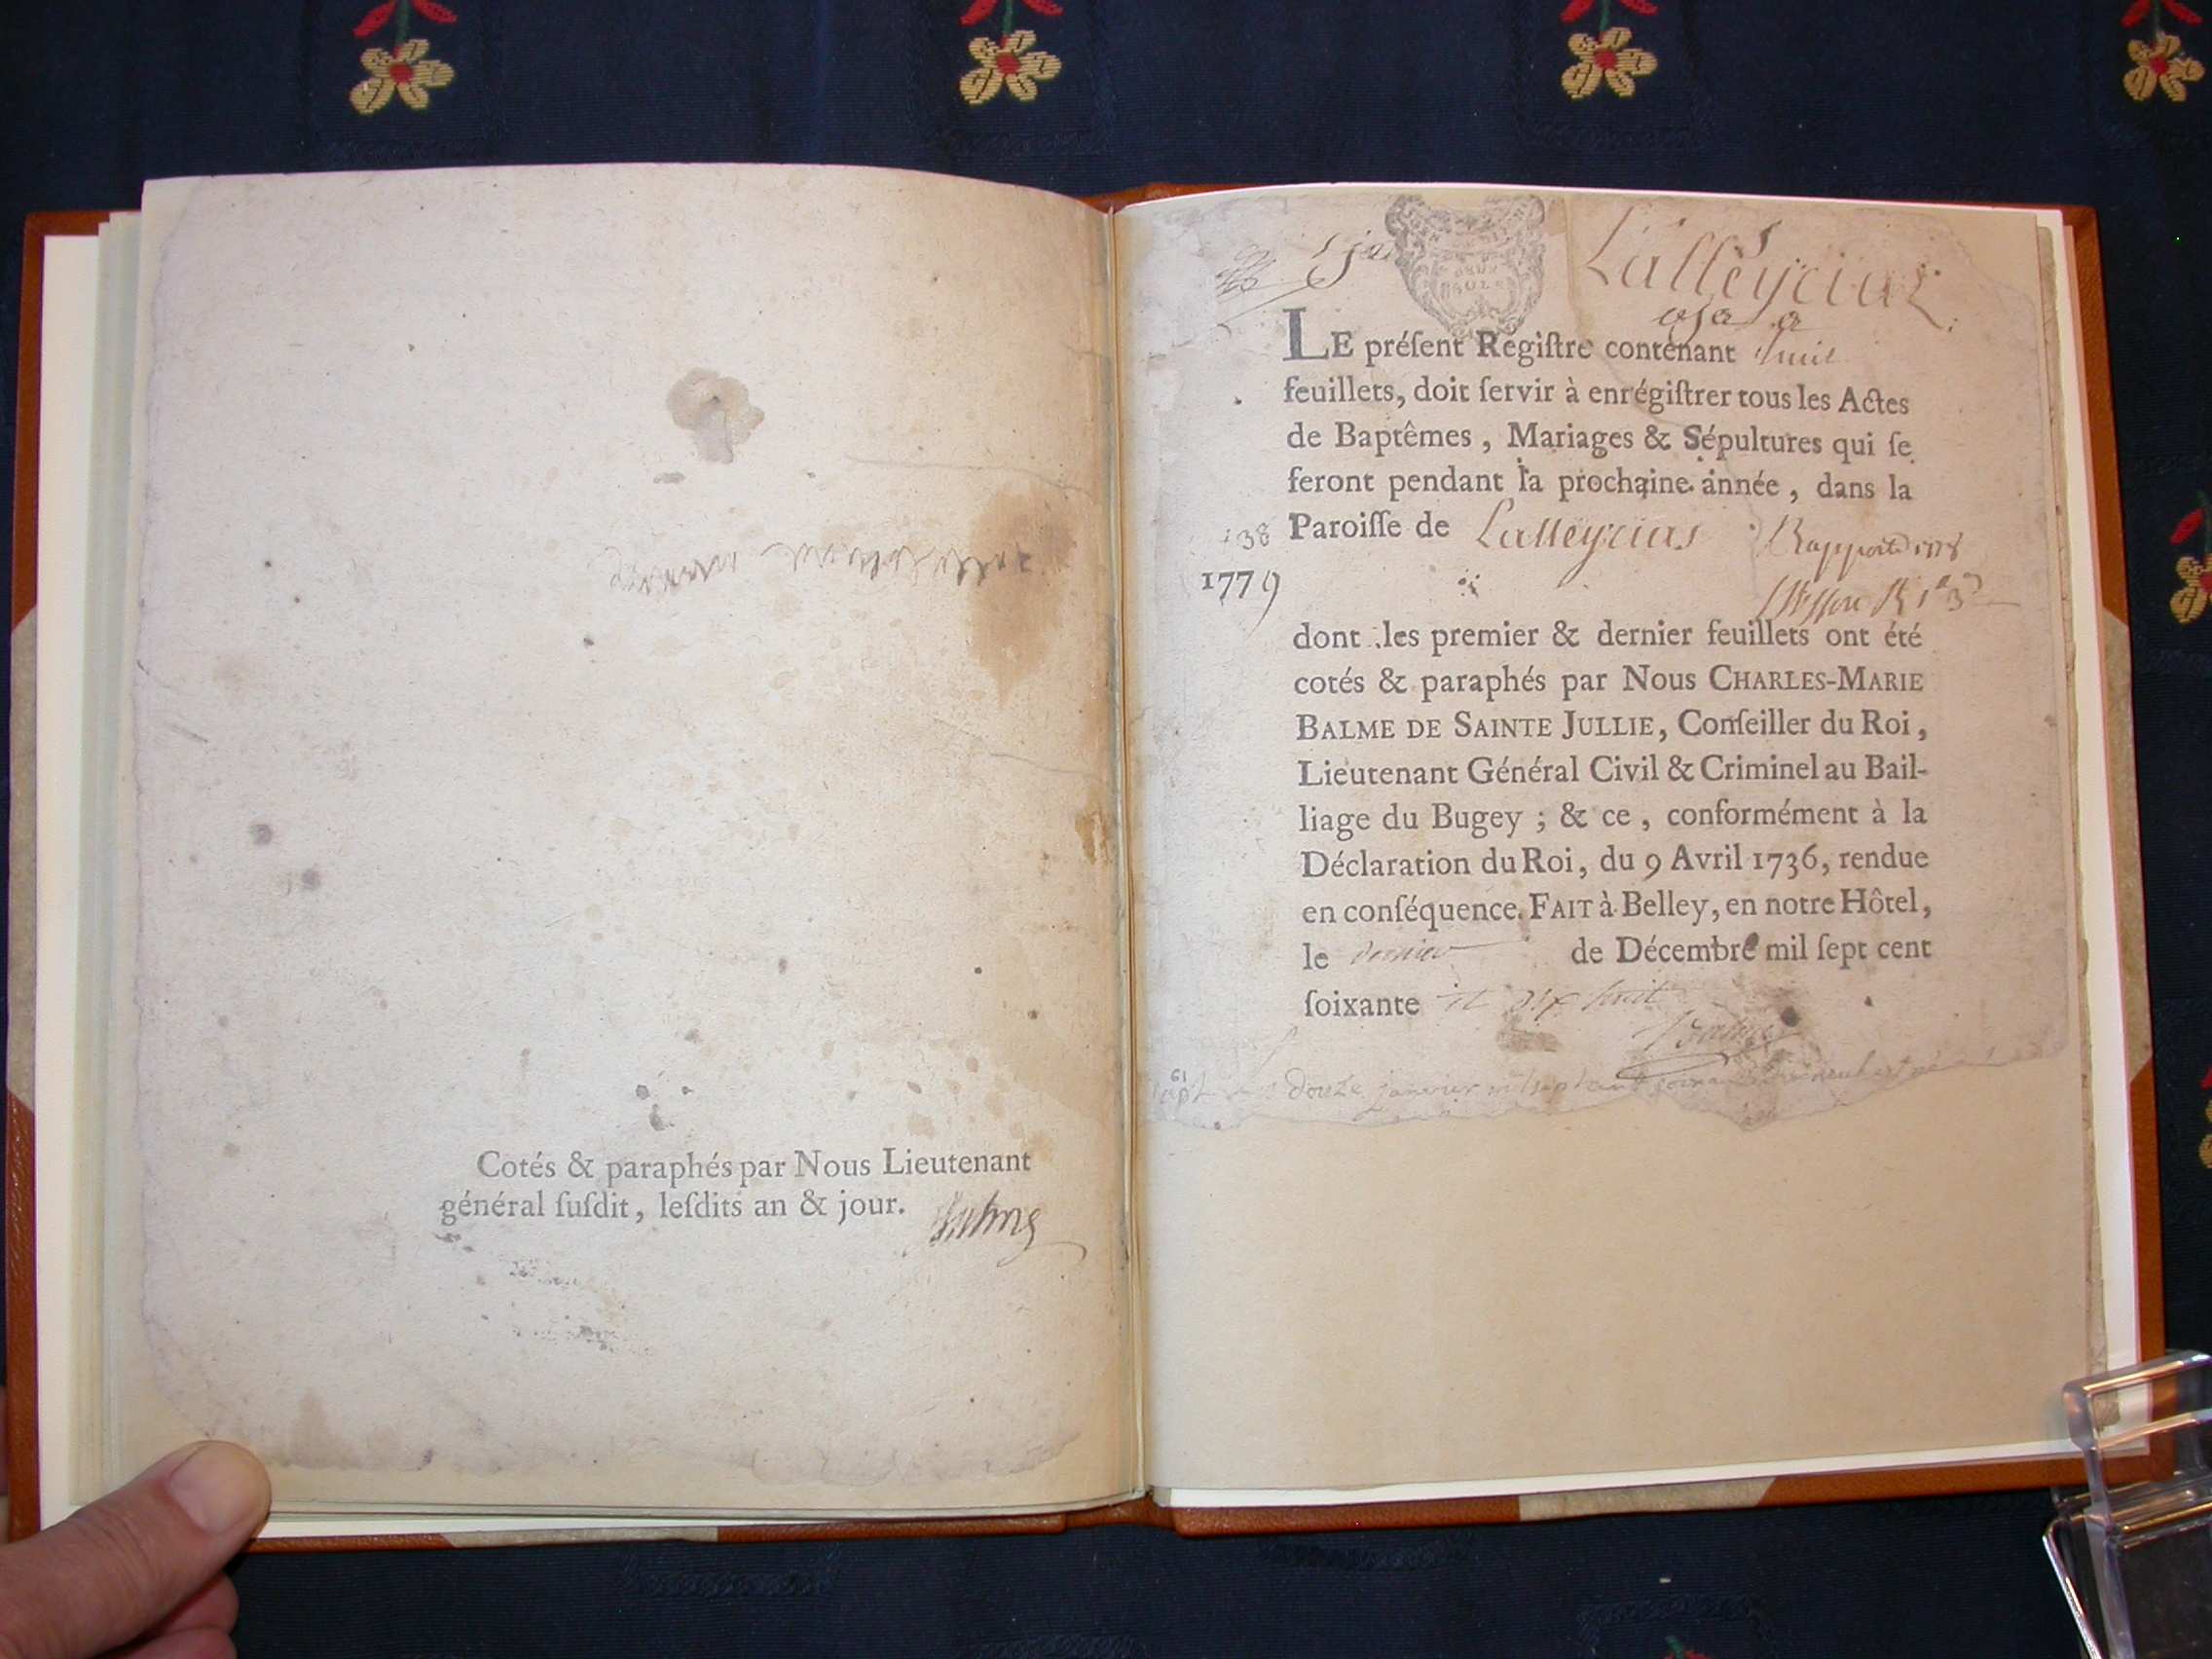 Cotés & paraphés par Nous Lieutenant
général ſuſdit, leſdits an & jour.
Balme
Lalleyriat
LE préſent Regiſtre contenant huit
feuillets, doit ſervir à enrégiſtrer tous les Actes
de Baptêmes, Mariages & Sépultures qui ſe
feront pendant la prochaine année, dans la
138 Paroiſſe de Lalleyriat
1779
dont les premier & dernier feuillets ont été
cotés & paraphés par Nous CHARLES-MARIE
BALME DE SAINTE JULLIE, Conſeiller du Roi,
Lieutenant Général Civil & Criminel au Bail-
liage du Bugey ; & ce, conformément à la
Déclaration du Roi, du 9 Avril 1736, rendue
en conſéquence. FAIT à Belley, en notre Hôtel,
le dernier de Décembre mil ſept cent
ſoixante et dix huit
Balme
61
douze janvier mil sept cent